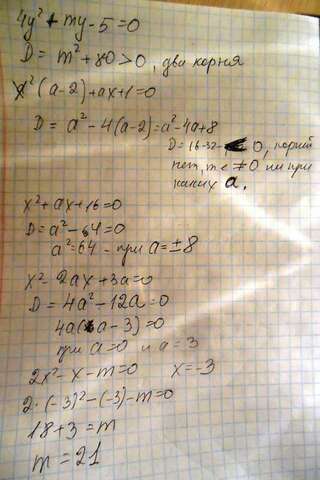 4y² + my - 5 = 0
D = m² + 80 > 0, два корня
x²(a-2) + ax + 1 = 0
D = a² - 4(a-2) = a² - 4a + 8
D = 16 - 32 - 0, корней
нет, т е ≠ 0 ни при
каких a.
x² + ax + 16 = 0
D = a² - 64 = 0
a² = 64 - при a = ± 8
x² - 2ax + 3a = 0
D = 4a² - 12a = 0
4a(a - 3) = 0
при a = 0 и a = 3
2x² - x - m = 0 x = -3
2·(-3)² - (-3) - m = 0
18 + 3 = m
m = 21